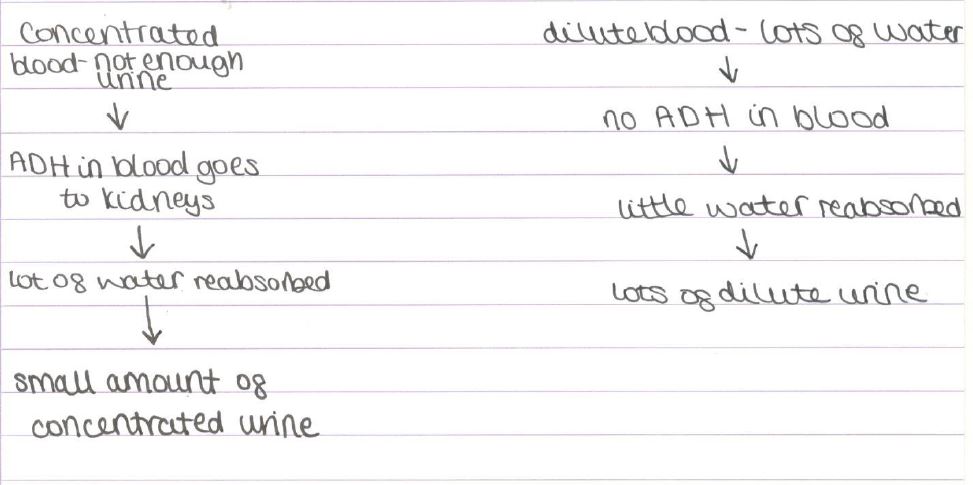 Concentrated
blood- not enough
urine
↓
ADH in blood goes
to kidneys
↓
lot of water reabsorbed
↓
small amount of
concentrated urine
dilute blood - lots of water
↓
no ADH in blood
↓
little water reabsorbed
↓
lots of dilute urine